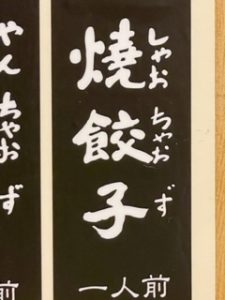 燒餃子
しゃおちゃおず
一人前
やんちゃおず
前